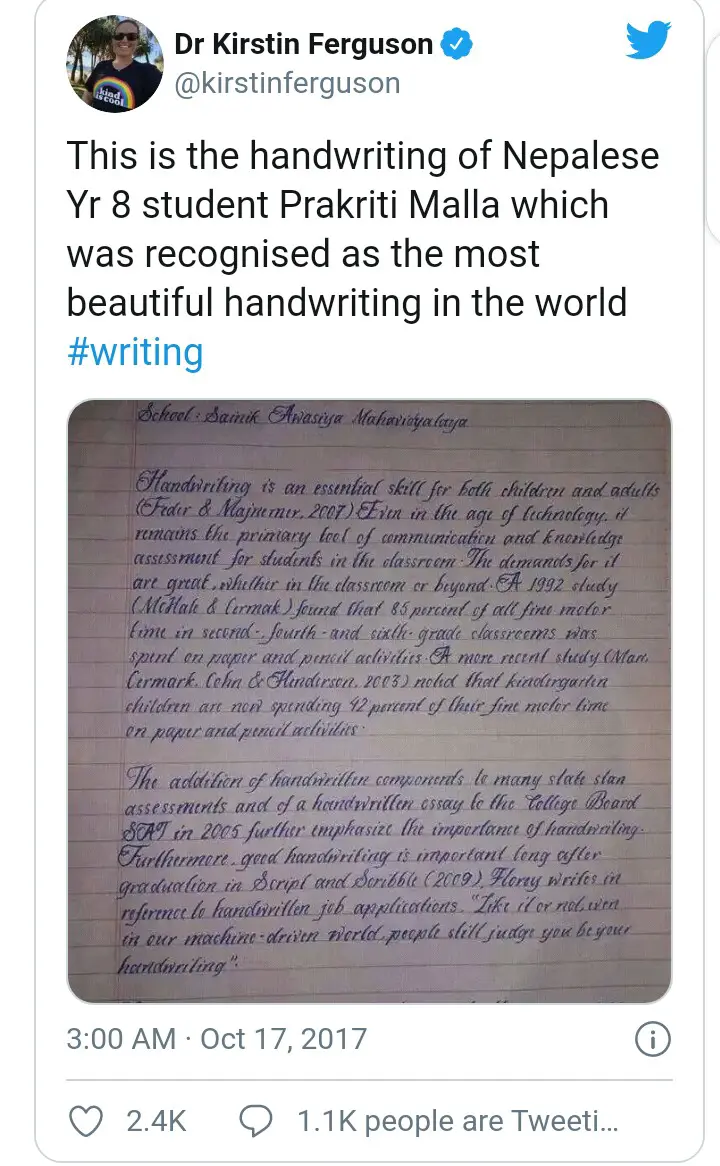 Dr Kirstin Ferguson
@kirstinferguson
This is the handwriting of Nepalese
Yr 8 student Prakriti Malla which
was recognised as the most
beautiful handwriting in the world
#writing
kind
is cool
School : Sainik Awasiya Mahavidyalaya
Handwriting is an essential skill for both children and adults
(Feder & Majnemer, 2007) Even in the age of technology, it
remains the primary tool of communication and knowledge
assessment for students in the classroom. The demands for it
are great, whether in the classroom or beyond. A 1992 study
(McHale & Cermak) found that 85 percent of all fine motor
time in second-, fourth- and sixth-grade classrooms was
spent on paper and pencil activities. A more recent study (Marr,
Cermark, Cohn & Henderson, 2003) noted that kindergarten
children are now spending 42 percent of their fine motor time
on paper and pencil activities.
The addition of handwritten components to many state stan
assessments and of a handwritten essay to the College Board
SAT in 2005 further emphasize the importance of handwriting.
Furthermore, good handwriting is important long after
graduation in Script and Scribble (2009), Florey writes in
reference to handwritten job applications, "Like it or not, even
in our machine-driven world, people still judge you be your
handwriting".
3:00 AM · Oct 17, 2017
2.4K
1.1K people are Tweeti...